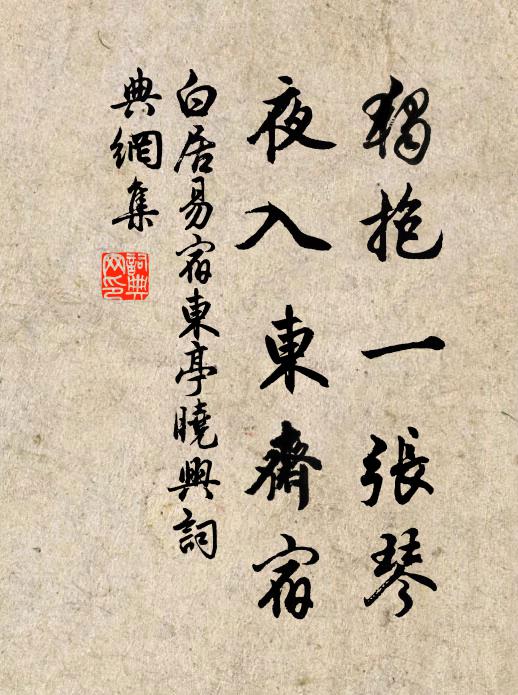 獨抱一張琴
夜入東齋宿
白居易宿東亭曉興詞
典網集
詞典網印